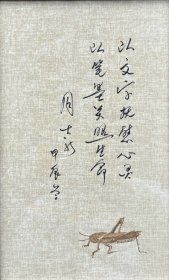 以文字抚慰心灵
以笔墨关照生命
周大新
甲辰